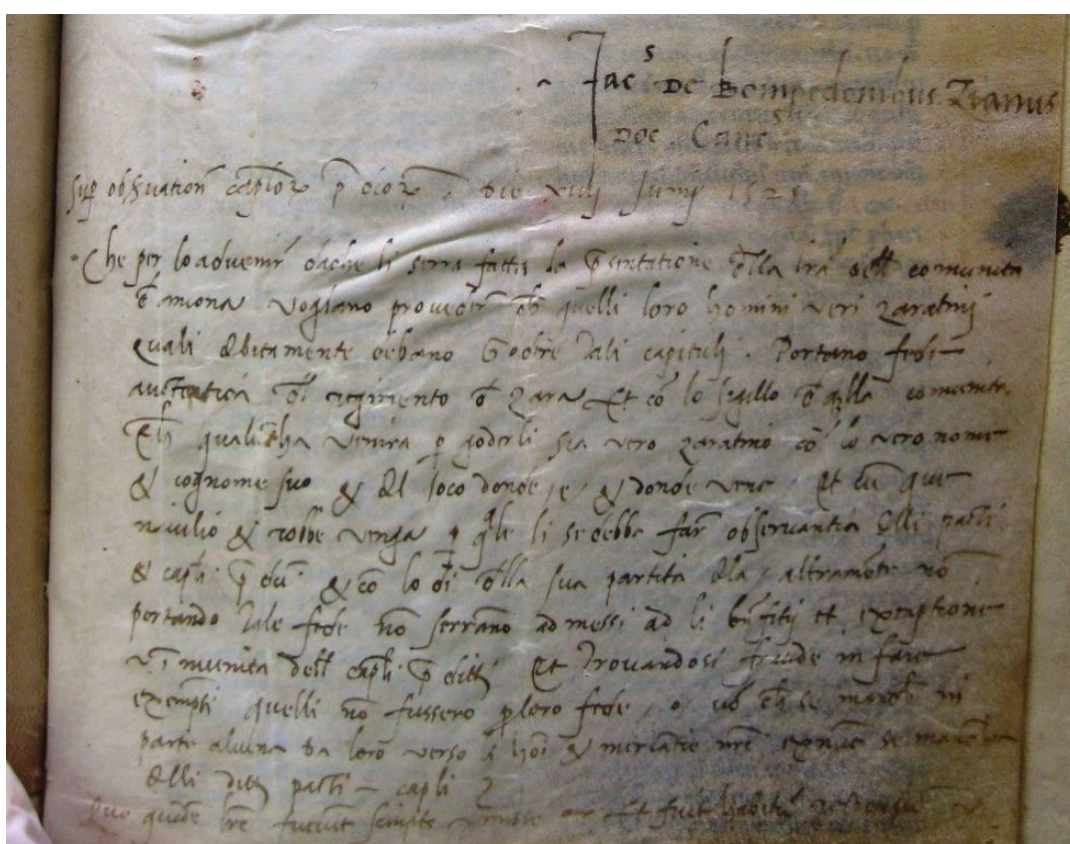 Jac s De Bompedonibus Zianus
Doc Canc
Sup obsuation caplor p dcor . die xiiij Junij 152
Che per lo advenir dache li serra fatta la pSintatione dlla lra dell comunita
d ancona vogliano provedir ch quelli loro homini veri zaratinj
quali debitamente debano Godere dali capitulj . Portano fede
autentica dl regimento d zara Et co lo sigillo d qlla comunita
Ch qualucha venira p goderli sia vero zaratino co lo vero nome
& cognome suo & dl loco donde , e , & donde vene , Et cu que
navilio & robbe venga p qle li se debba far observantia dlli pacti
& capli p du & co lo di dlla sua partita dla , altramete no
portando Tale fede no serrano admessi ad li bnfitij et exemptione
munita dell capli p ditti Et Trovandosi fraude in fare
exempti quelli no fussero p loro fede , o , vo ch se manch in
parte alcuna da loro verso li hoi & mercatie nre
dlli ditti pacti capli
Que quide lre fuerut scripte Et fuit